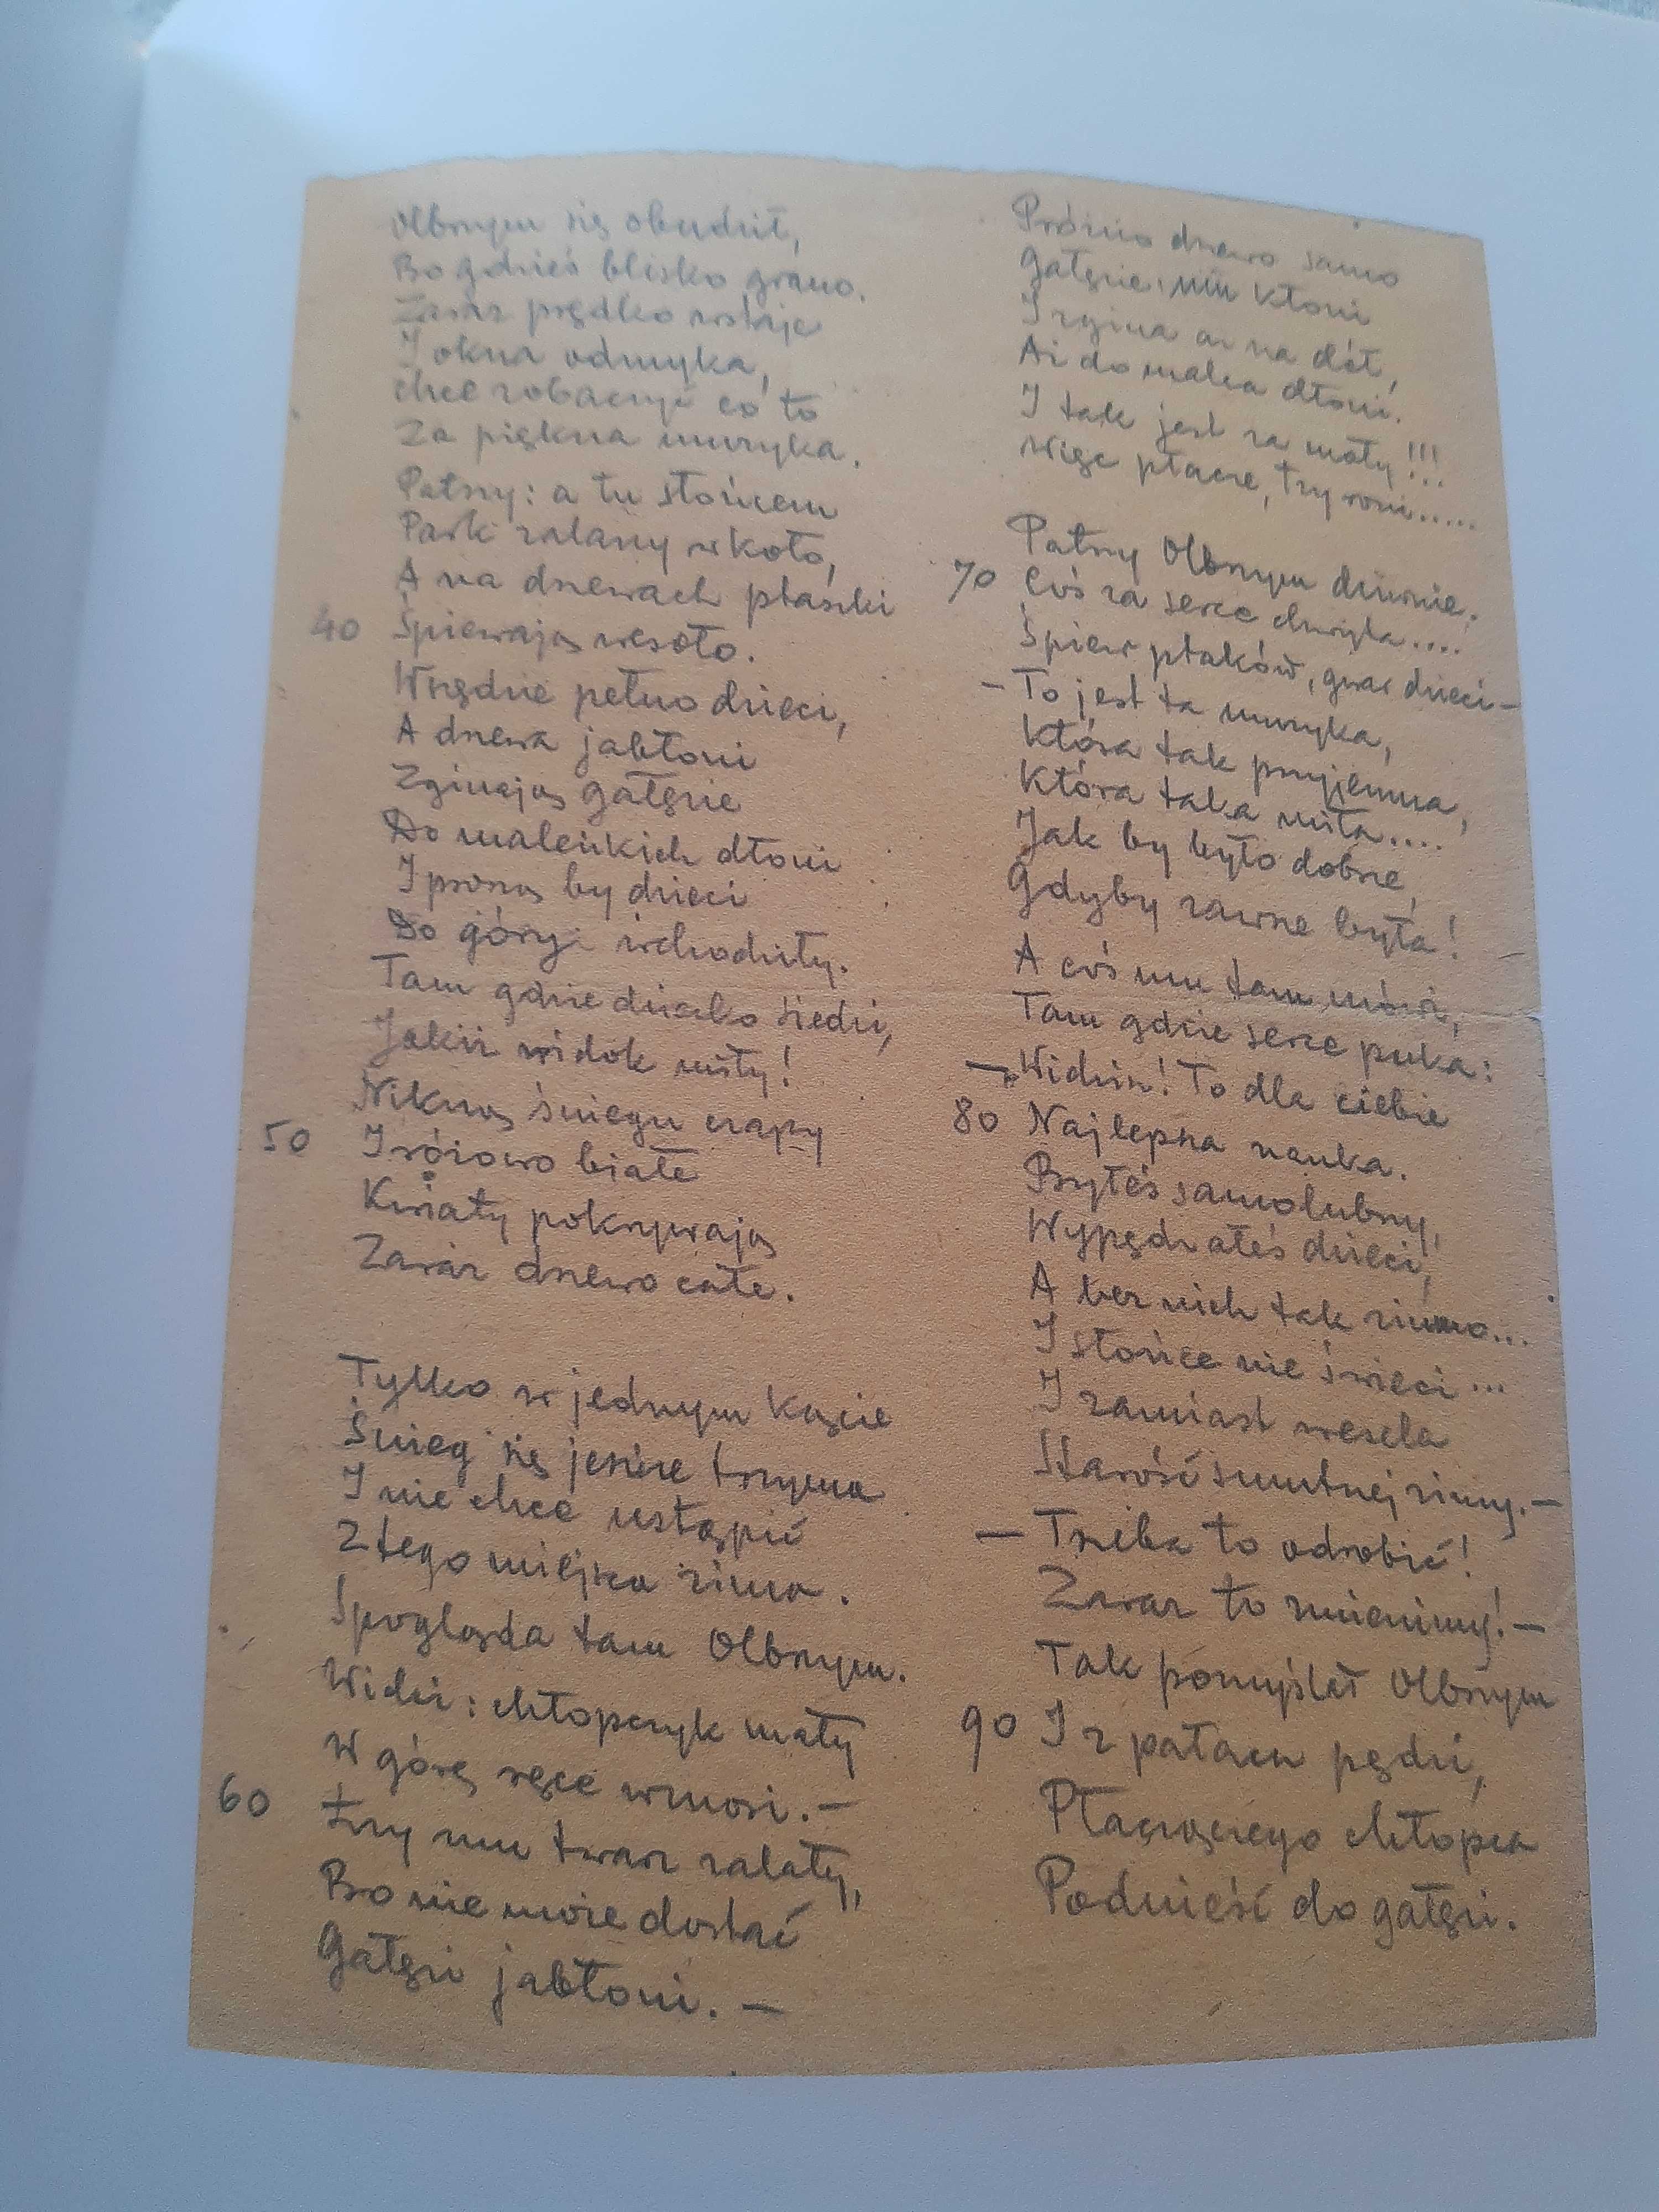 Olbrzym się obudził,
Bo gdzieś blisko grano.
Zaraz prędko wstaje
I okna odmyka,
Chce zobaczyć co to
Za piękna muzyka.
Patrzy: a tu słońcem
Park zalany wkoło,
A na drzewach ptaszki
40 Śpiewają wesoło.
Wszędzie pełno dzieci,
A drzewa jabłoni
Zginają gałęzie
Do maleńkich dłoni
I proszą by dzieci
Do góry wchodziły.
Tam gdzie dziecko siedzi,
Jakiż widok miły!
Nikną śniegu czapy
50 I różowo białe
Kwiaty pokrywają
Zaraz drzewo całe.
Tylko w jednym kącie
Śnieg się jeszcze trzyma
I nie chce ustąpić
Z tego miejsca zima.
Spogląda tam Olbrzym.
Widzi: chłopczyk mały
W górę ręce wznosi.—
60 Łzy mu twarz zalały,
Bo nie może dostać
Gałęzi jabłoni.—
Próżno drzewo samo
Gałęzie kłoni
I zgina aż na dół,
Aż do malca dłoni.
I tak jest za mały!!!
Więc płacze, łzy roni.....
Patrzy Olbrzym dziwnie.
70 Coś za serce chwyta....
Śpiew ptaków, gwar dzieci—
— To jest ta muzyka,
Która tak przyjemna,
Która taka miła....
Jak by było dobrze,
Gdyby zawsze była!
A coś mu tam mówi,
Tam gdzie serce puka:
— Widzisz! To dla ciebie
80 Najlepsza nauka.
Byłeś samolubny,
Wypędzałeś dzieci,
A bez nich tak zimno...
I słońce nie świeci...
I zamiast wesela
Starość smutnej zimy.—
— Trzeba to odrobić!
Zaraz to zmienimy!—
Tak pomyślał Olbrzym
90 I z pałacu pędzi,
Płaczącego chłopca
Podnieść do gałęzi.